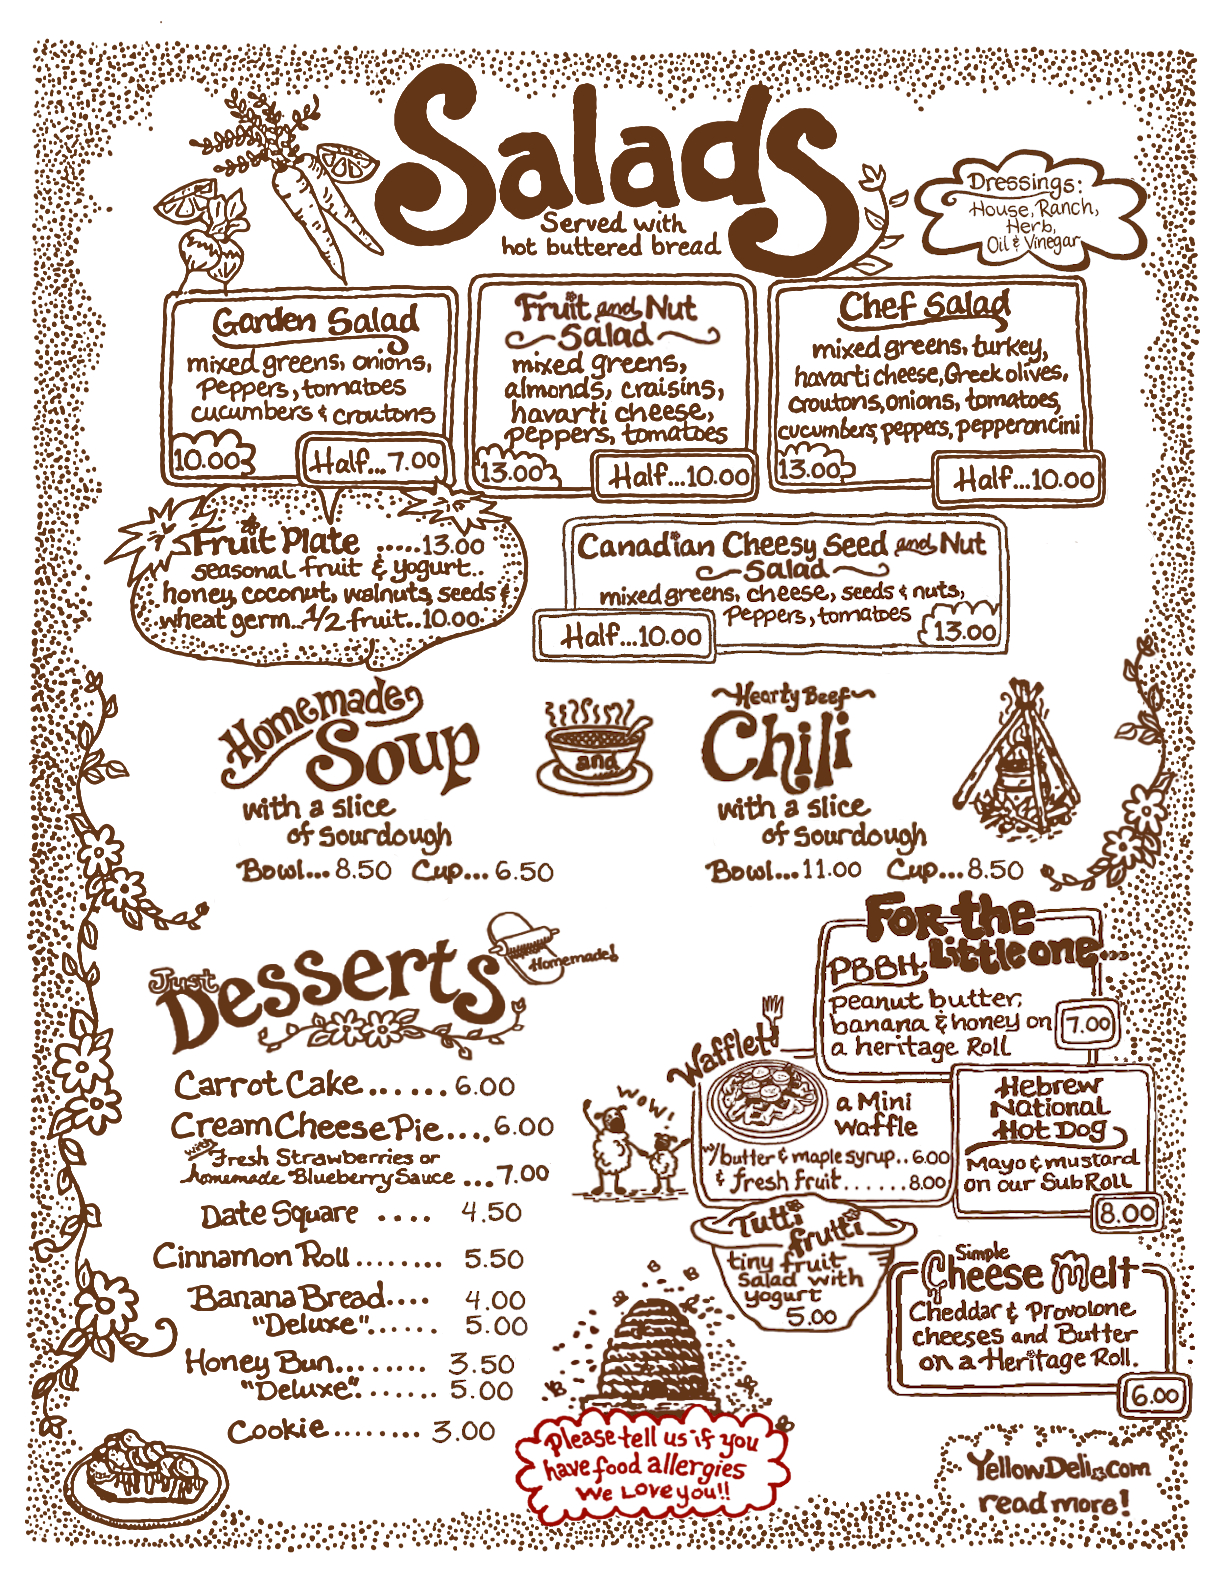 Salads
Served with
hot buttered bread
Dressings:
House, Ranch,
Herb,
Oil & Vinegar
Garden Salad
mixed greens, onions,
Peppers, tomatoes
cucumbers & croutons
10.00
Half...7.00
Fruit and Nut
Salad
mixed greens,
almonds, craisins,
havarti cheese,
peppers, tomatoes
13.00
Half...10.00
Chef Salad
mixed greens, turkey,
havarti cheese, Greek olives,
croutons, onions, tomatoes,
cucumbers, peppers, pepperoncini
13.00
Half...10.00
Fruit Plate .....13.00
seasonal fruit & yogurt..
honey, coconut, walnuts, seeds &
wheat germ...1/2 fruit..10.00
Canadian Cheesy Seed and Nut
Salad
mixed greens, cheese, seeds & nuts,
Peppers, tomatoes
Half...10.00
13.00
Homemade
Soup
with a slice
of sourdough
Bowl...8.50 Cup...6.50
and
Hearty Beef
Chili
with a slice
of sourdough
Bowl...11.00 Cup...8.50
Just
Desserts
Homemade!
Carrot Cake......6.00
Cream Cheese Pie....6.00
with Fresh Strawberries or
homemade Blueberry Sauce ...7.00
Date Square .... 4.50
Cinnamon Roll........ 5.50
Banana Bread.... 4.00
"Deluxe"...... 5.00
Honey Bun........ 3.50
"Deluxe"....... 5.00
Cookie........ 3.00
For the
Little one...
PBBH
peanut butter,
banana & honey on
a heritage Roll
7.00
Wafflet
a Mini
Waffle
w/butter & maple syrup..6.00
& fresh fruit......8.00
Wow!
Hebrew
National
Hot Dog
Mayo & mustard
on our Sub Roll
8.00
Tutti
frutti
tiny fruit
salad with
yogurt
5.00
Simple
Cheese Melt
Cheddar & Provolone
cheeses and Butter
on a Heritage Roll.
6.00
Please tell us if you
have food allergies
We Love you!!
YellowDeli.com
read more!